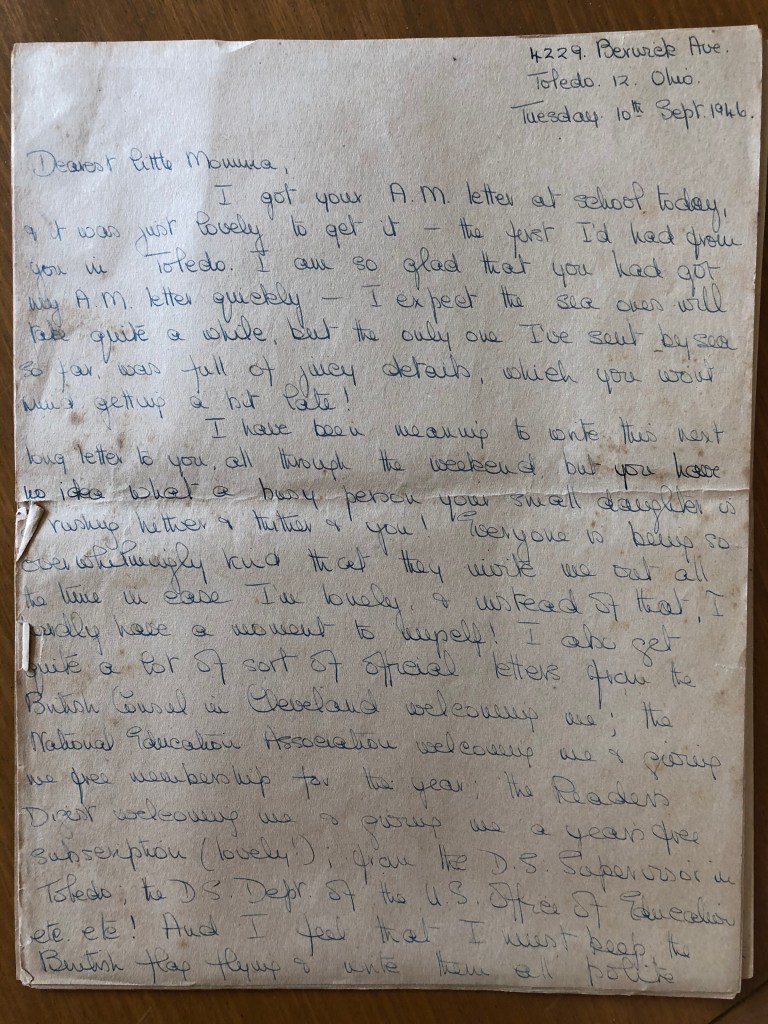 4229. Berwick Ave.
Toledo. 12. Ohio.
Tuesday. 10th Sept. 1946.
Dearest little Momma,
I got your A.M. letter at school today,
& it was just lovely to get it – the first I'd had from
you in Toledo. I am so glad that you had got
my A.M. letter quickly – I expect the sea ones will
take quite a while, but the only one I've sent by sea
so far, was full of juicy details, which you won't
mind getting a bit late!
I have been meaning to write this next
long letter to you, all through the weekend, but you have
no idea what a busy person your small daughter is
rushing hither & thither & you! Everyone is being so
overwhelmingly kind that they invite me out all
the time in case I'm lonely, & instead of that, I
hardly have a moment to myself! I also get
quite a lot of sort of official letters from the
British Consul in Cleveland welcoming me; the
National Education Association welcoming me & giving
me free membership for the year; the Readers
Digest welcoming me & giving me a years free
subscription (lovely!), from the D.S. Supervisor in
Toledo; the D.S. Dept. of the U.S. Office of Education
etc. etc! And I feel that I must keep the
British flag flying & write them all polite